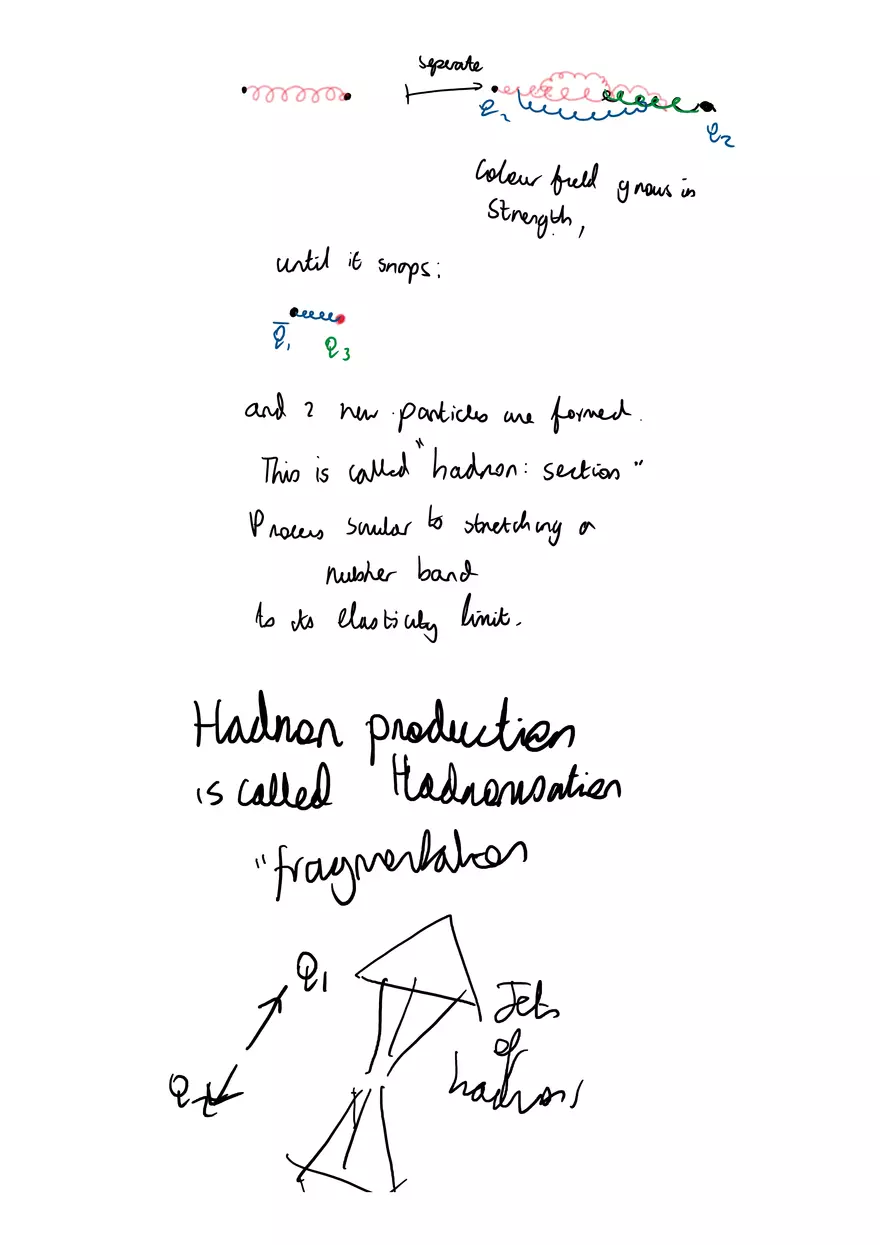 seperate
Q₁ Q₂
Colour field grows in
strength,
until it snaps:
Q̅₁ Q₃
and 2 new particles are formed.
This is called "hadron: section"
Process similar to stretching a
rubber band
to its elasticity limit.
Hadron production
is called Hadronisation
"fragmentation
Q₁
Jets
of
Q₂
hadrons